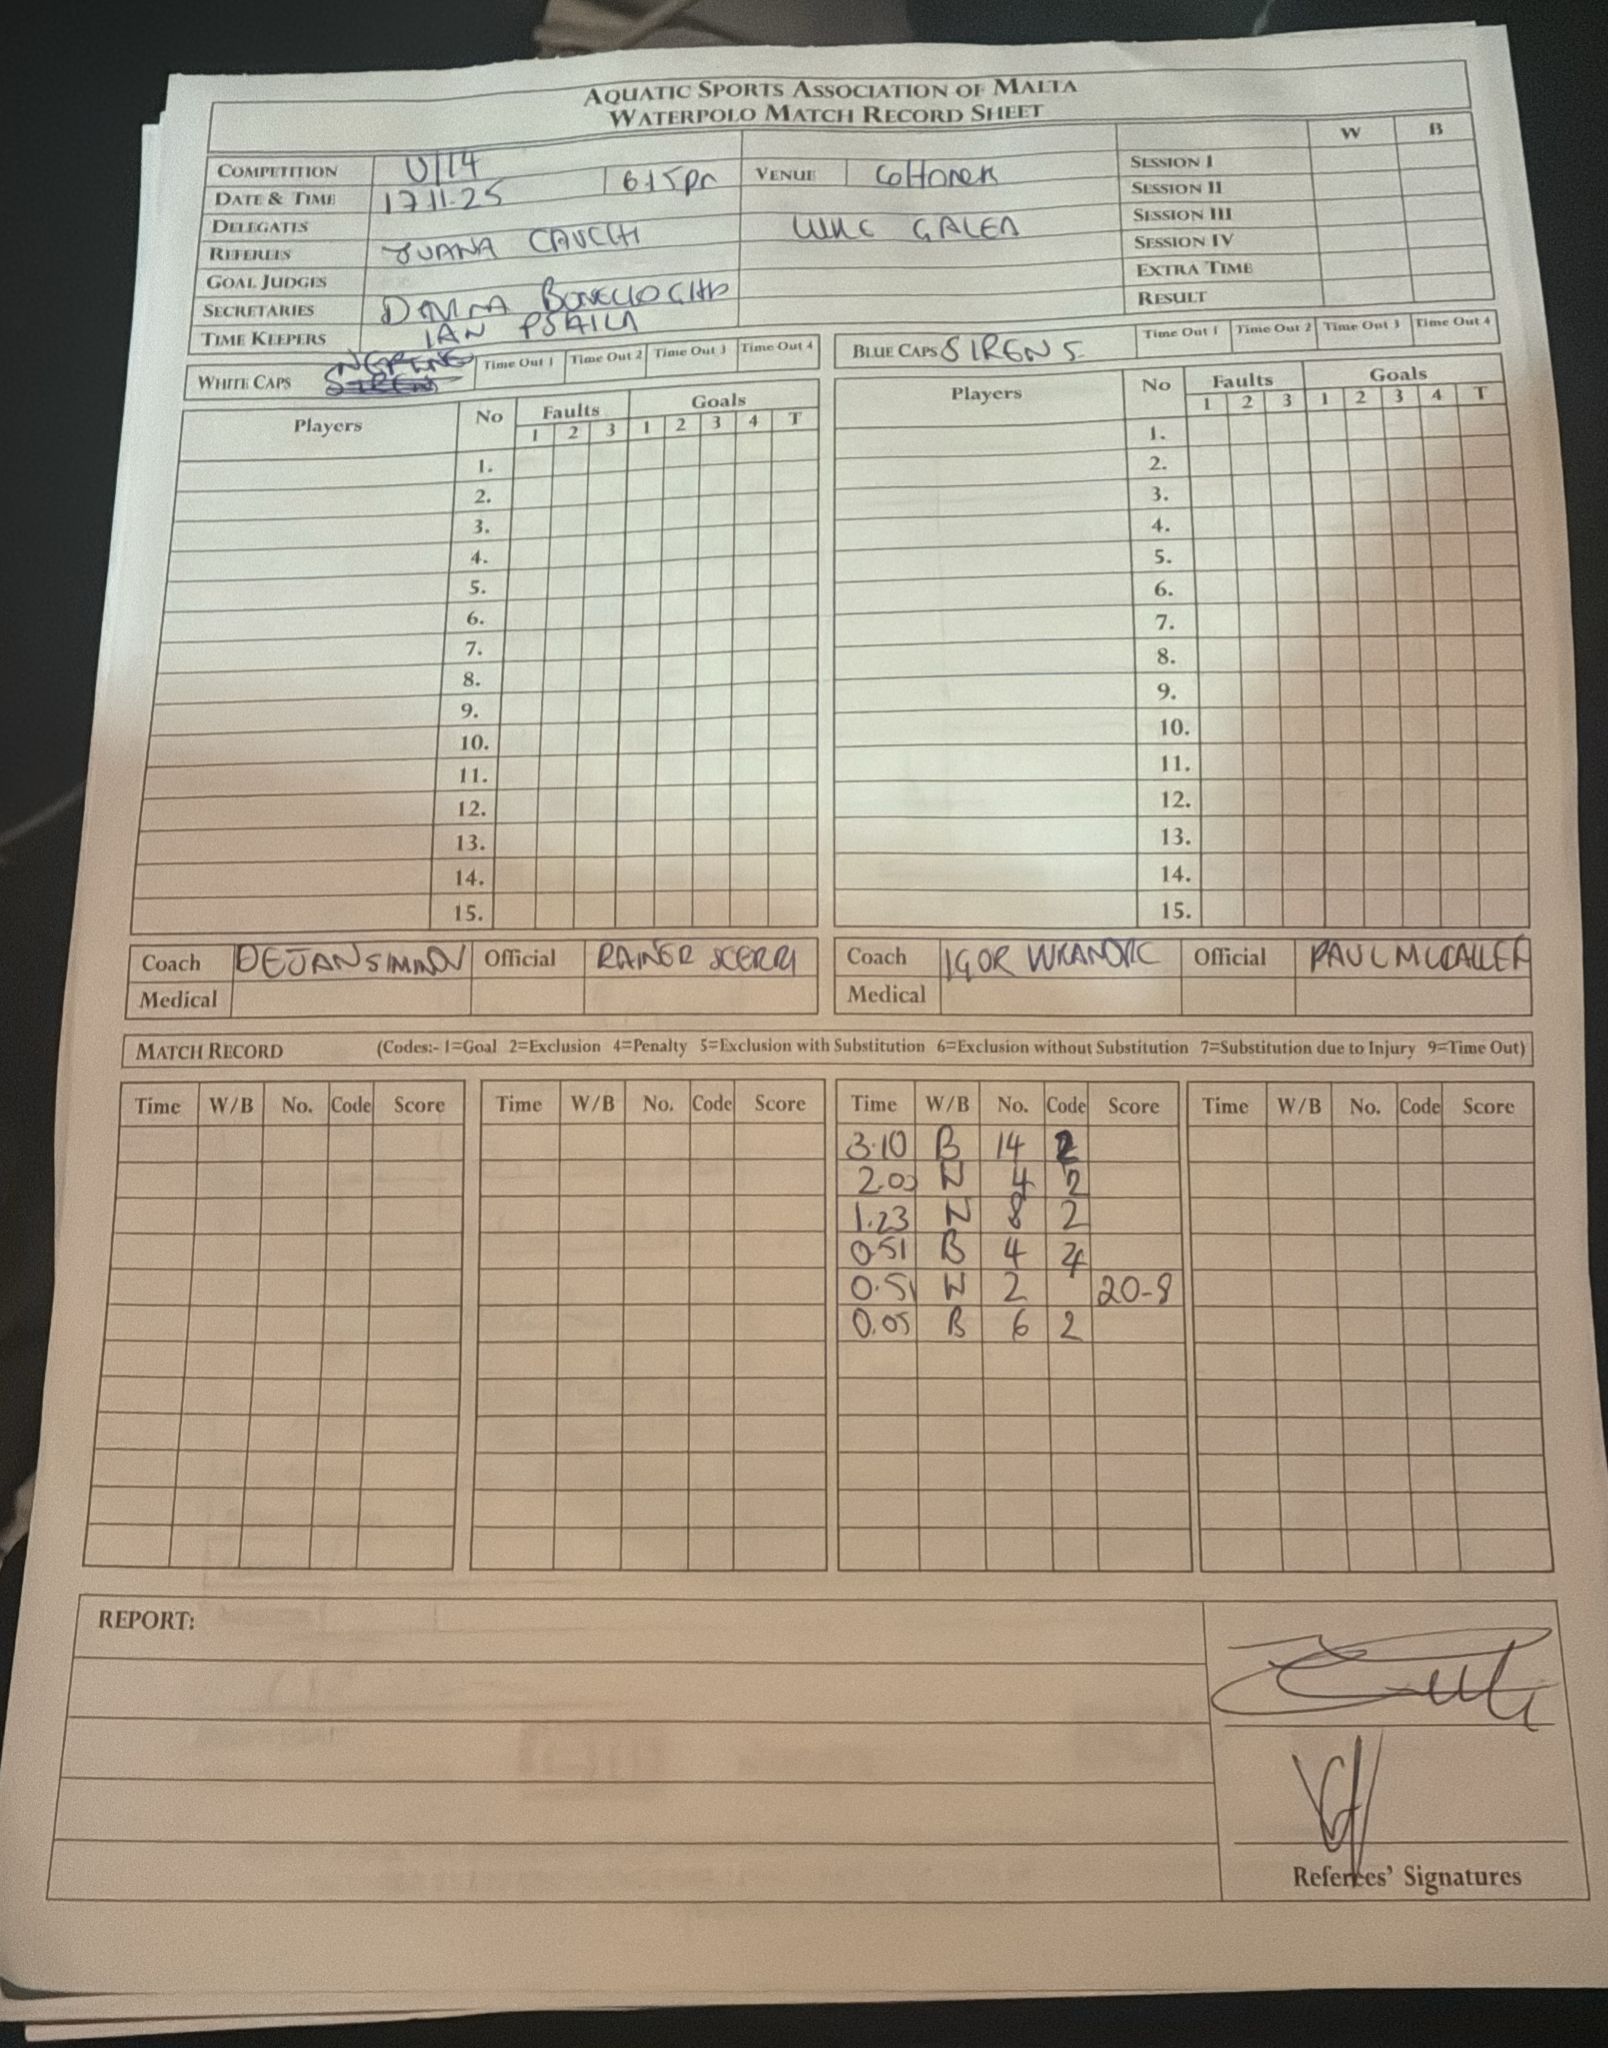 AQUATIC SPORTS ASSOCIATION OF MALTA
WATERPOLO MATCH RECORD SHEET
COMPETITION U/14
DATE & TIME 17.11.25 6.15pm VENUE Cottonera
DELEGATES
REFEREES JUANA CAUCHI GALEA
GOAL JUDGES
SECRETARIES
TIME KEEPERS IAN PSAILA
W B
SESSION I
SESSION II
SESSION III
SESSION IV
EXTRA TIME
RESULT
WHITE CAPS Time Out 1 Time Out 2 Time Out 3 Time Out 4
BLUE CAPS SIRENS Time Out 1 Time Out 2 Time Out 3 Time Out 4
Players No Faults Goals
1 2 3 1 2 3 4 T
1.
2.
3.
4.
5.
6.
7.
8.
9.
10.
11.
12.
13.
14.
15.
Players No Faults Goals
1 2 3 1 2 3 4 T
1.
2.
3.
4.
5.
6.
7.
8.
9.
10.
11.
12.
13.
14.
15.
Coach DEJAN Official RAINER SCERRI
Medical
Coach IGOR Official PAUL
Medical
MATCH RECORD (Codes:- 1=Goal 2=Exclusion 4=Penalty 5=Exclusion with Substitution 6=Exclusion without Substitution 7=Substitution due to Injury 9=Time Out)
Time W/B No. Code Score
Time W/B No. Code Score
Time W/B No. Code Score
3.10 B 14 2
2.05 W 4 2
1.23 W 8 2
0.51 B 4 4
0.51 W 2 20-8
0.05 B 6 2
Time W/B No. Code Score
REPORT:
Referees' Signatures